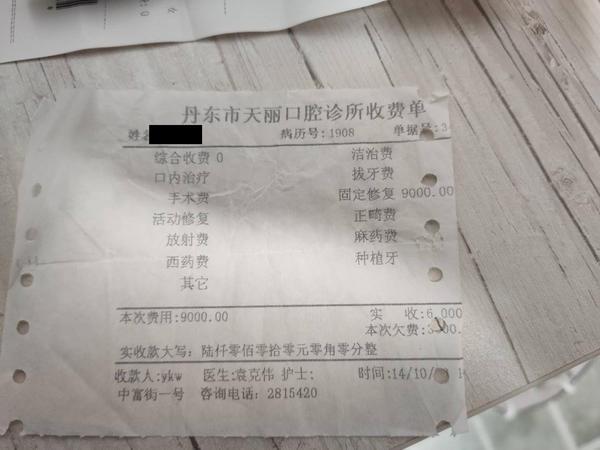 丹东市天丽口腔诊所收费单
姓名 病历号:1908 单据号:3
综合收费 0 洁治费
口内治疗 拔牙费
手术费 固定修复 9000.00
活动修复 正畸费
放射费 麻药费
西药费 种植牙
其它
本次费用:9000.00 实 收:6,000
本次欠费:3
实收款大写: 陆仟零佰零拾零元零角零分整
收款人:ykw 医生:袁克伟 护士: 时间:14/10/
中富街一号 咨询电话: 2815420